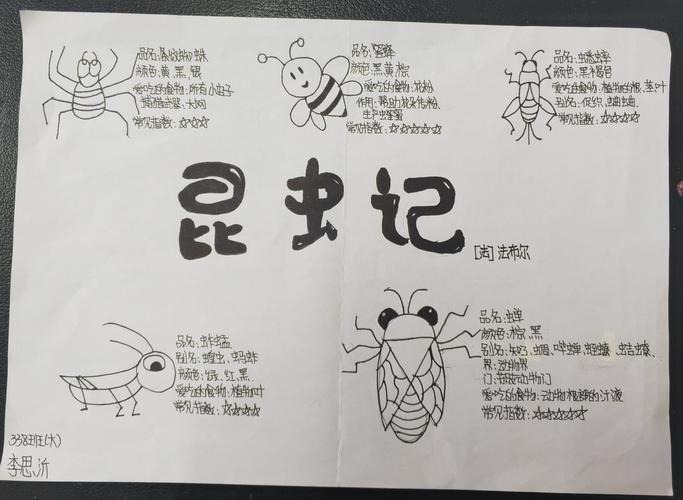 品名:条纹蜘蛛
颜色:黄、黑、银
爱吃的食物:所有小虫子
捕猎武器:大网
常见指数:☆☆☆☆
品名:蜜蜂
颜色:黑、黄、棕
爱吃的食物:花粉
作用:帮助花朵传粉、
生产蜂蜜
常见指数:☆☆☆☆☆
品名:蟋蟀
颜色:黑褐色
爱吃的食物:植物的根、茎、叶
别名:促织、蛐蛐
常见指数:☆☆☆☆
昆虫记
[法]法布尔
品名:蚱蜢
别名:蝗虫、蚂蚱
颜色:绿、红、黑
爱吃的食物:植物叶
常见指数:☆☆☆☆
品名:蝉
颜色:棕、黑
界:动物界
门:节肢动物门
爱吃的食物:动物根部的汁液
常见指数:☆☆☆☆☆
李思沂